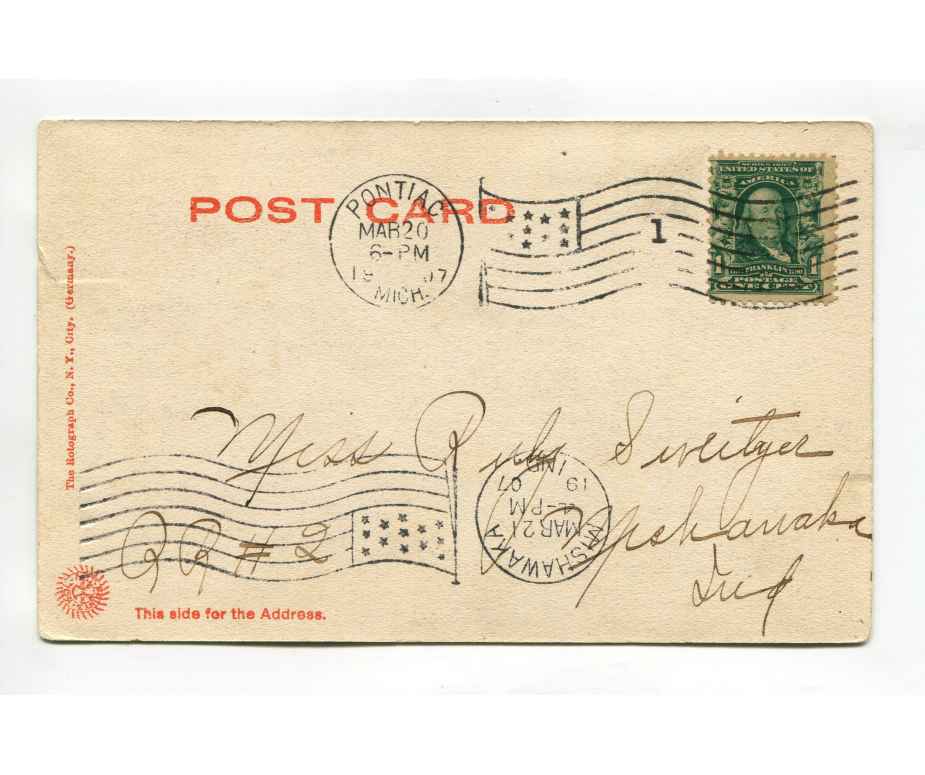 POST CARD
PONTIAC
MAR 20
6-PM
19 07
MICH.
1
SERIES 1902
UNITED STATES OF
AMERICA
1 FRANKLIN 1
POSTAGE
ONE CENT
The Rotograph Co., N. Y., City. (Germany.)
Miss Ruby Sweitzer
Mishawaka
Ind
RR # 2
MISHAWAKA
MAR 21
-PM
19 07
IND.
This side for the Address.